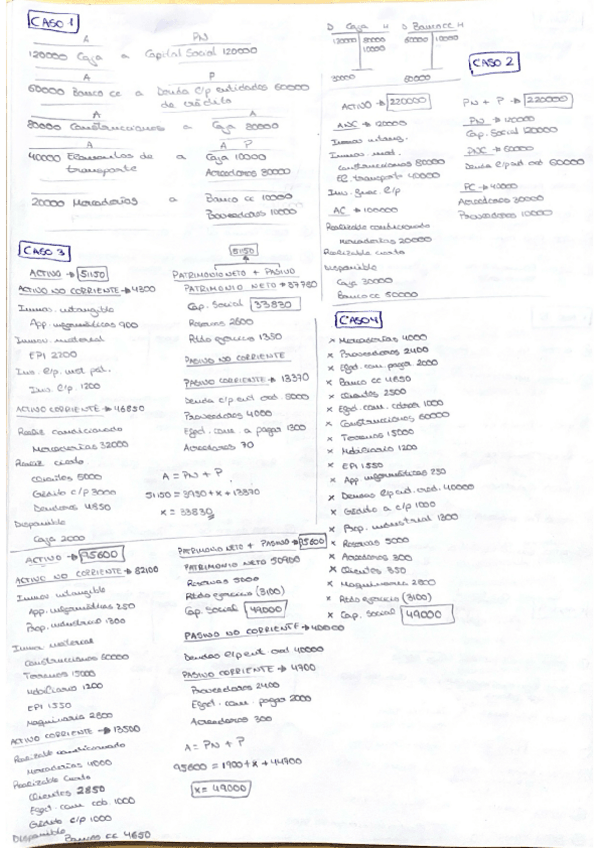 CASO 1
A PN
120000 Caja a Capital Social 120000
A P
60000 Banco cc a Deuda c/p entidades 60000
de crédito
A A
80000 Construcciones a Caja 80000
A A P
40000 Elementos de a Caja 10000
transporte Acreedores 30000
20000 Mercaderías a Banco cc 10000
Proveedores 10000
D Caja H D Banco cc H
120000 80000 60000 10000
10000
30000 50000
CASO 2
ACTIVO → 220000 PN + P → 220000
ANC → 120000
Inmov. intang.
Inmov. mat.
construcciones 80000
EC transport 40000
Inv. financ. c/p
AC → 100000
Realizable condicionado
mercaderías 20000
Realizable cierto
Disponible
Caja 30000
Banco cc 50000
PN → 120000
Cap. Social 120000
PNC → 60000
Deuda c/p ent. cred 60000
PC → 40000
Acreedores 30000
Proveedores 10000
CASO 3
ACTIVO → 51150
ACTIVO NO CORRIENTE → 4300
Inmov. intangible
App. informáticas 900
Inmov. material
EPI 2200
Inv. c/p. 1200
ACTIVO CORRIENTE → 46850
Realiz condicionado
Mercaderías 32000
Realiz. cierto
Clientes 5000
Crédito c/p 3000
Deudores 4850
Disponible
Caja 2000
51150
PATRIMONIO NETO + PASIVO
PATRIMONIO NETO → 37780
Cap. Social 33830
Reservas 2600
Rtdo ejercicio 1350
PASIVO NO CORRIENTE
PASIVO CORRIENTE → 13370
Deuda c/p ent. cred. 8000
Proveedores 4000
Efect. com. a pagar 1300
Acreedores 70
A = PN + P
51150 = 3950 + x + 13370
x = 33830
CASO 4
x Mercaderías 4000
x Proveedores 2400
x Efect. com. pagar 2000
x Banco cc 4650
x Clientes 2500
x Efect. com. cobrar 1000
x Construcciones 60000
x Terrenos 15000
x Mobiliario 1200
x EPI 1550
x App. informáticas 250
x Deudas c/p ent. cred. 40000
x Crédito a c/p 1000
x Prop. industrial 1300
x Reservas 5000
x Acreedores 300
x Clientes 350
x Maquinaria 2800
x Rtdo ejercicio (3100)
x Cap. Social 49000
ACTIVO → 95600
ACTIVO NO CORRIENTE → 82100
Inmov intangible
App. informáticas 250
Prop. industrial 1300
Inmov material
Construcciones 60000
Terrenos 15000
Mobiliario 1200
EPI 1550
Maquinaria 2800
ACTIVO CORRIENTE → 13500
Realizable condicionado
Mercaderías 4000
Realizable cierto
Clientes 2850
Efect. com. cob. 1000
Crédito c/p 1000
Disponible
Bancos cc 4650
PATRIMONIO NETO + PASIVO → 95600
PATRIMONIO NETO 50900
Reservas 5000
Rtdo ejercicio (3100)
Cap. Social 49000
PASIVO NO CORRIENTE → 40000
Deudas c/p ent. cred 40000
PASIVO CORRIENTE → 4900
Proveedores 2400
Efect. com. pagar 2000
Acreedores 300
A = PN + P
95600 = 1900 + x + 44900
x = 49000